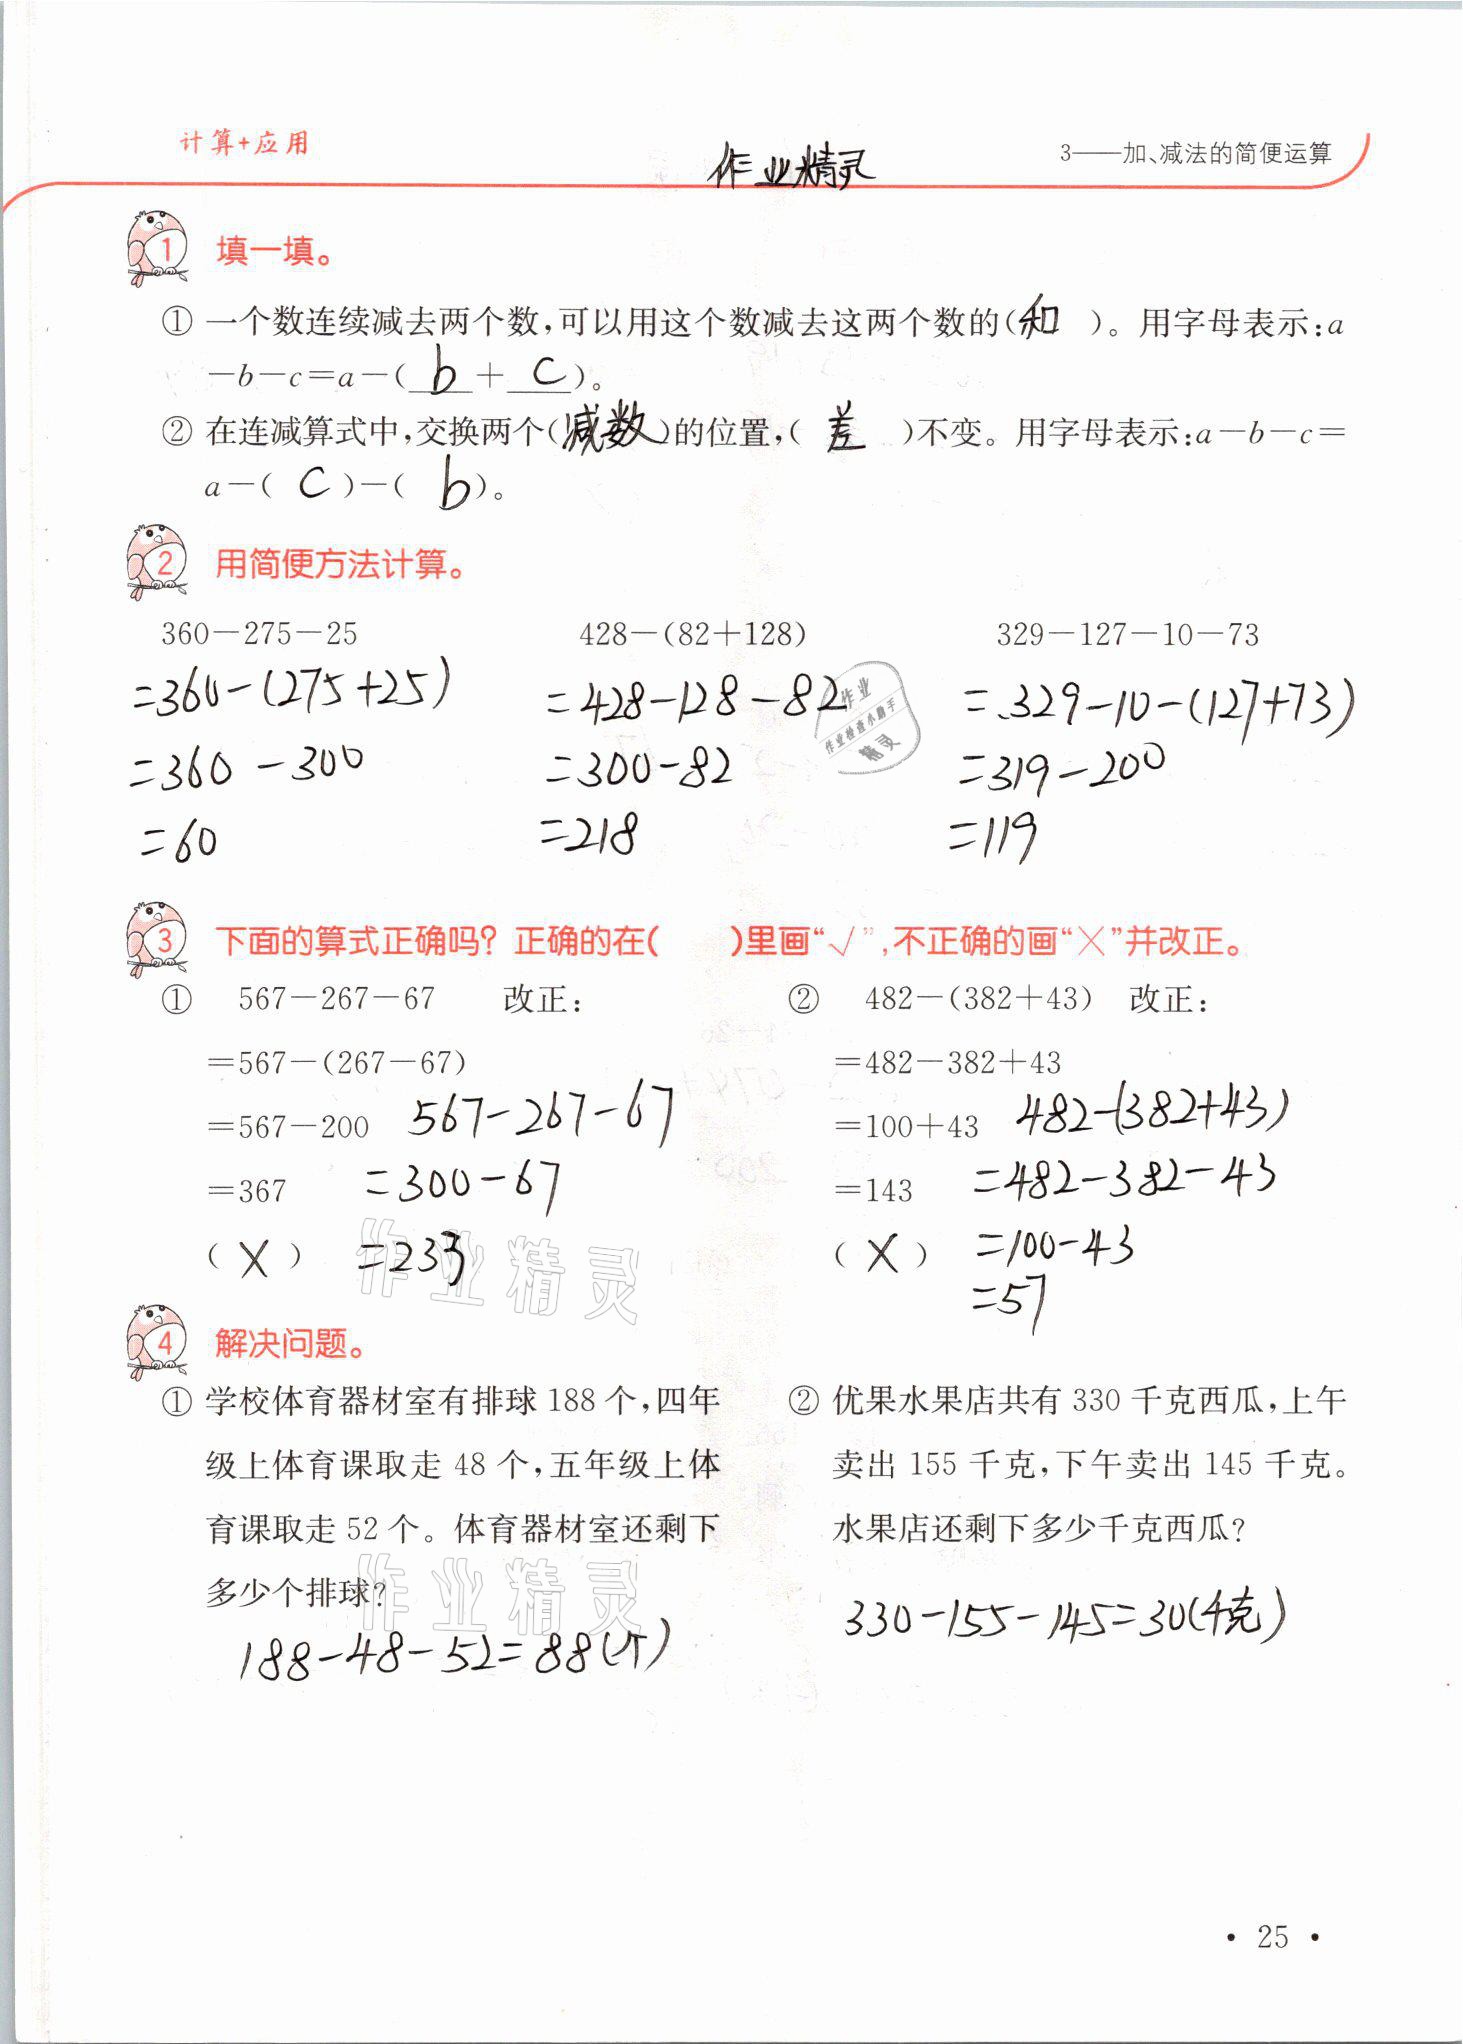 计算+应用
作业精灵
3——加、减法的简便运算
1 填一填。
① 一个数连续减去两个数,可以用这个数减去这两个数的(和)。用字母表示:a
-b-c=a-(b+c)。
② 在连减算式中,交换两个(减数)的位置,(差)不变。用字母表示:a-b-c=
a-(c)-(b)。
2 用简便方法计算。
360-275-25 428-(82+128) 329-127-10-73
=360-(275+25) =428-128-82 =329-10-(127+73)
=360-300 =300-82 =319-200
=60 =218 =119
作业
作业检查小助手
精灵
3 下面的算式正确吗?正确的在( )里画“√”,不正确的画“×”并改正。
① 567-267-67 改正:
=567-(267-67)
=567-200 567-267-67
=367 =300-67
(×) =233
② 482-(382+43) 改正:
=482-382+43
=100+43 482-(382+43)
=143 =482-382-43
(×) =100-43
=57
作业精灵
4 解决问题。
① 学校体育器材室有排球188个,四年
级上体育课取走48个,五年级上体
育课取走52个。体育器材室还剩下
多少个排球?
188-48-52=88(个)
② 优果水果店共有330千克西瓜,上午
卖出155千克,下午卖出145千克。
水果店还剩下多少千克西瓜?
330-155-145=30(千克)
作业精灵
·25·